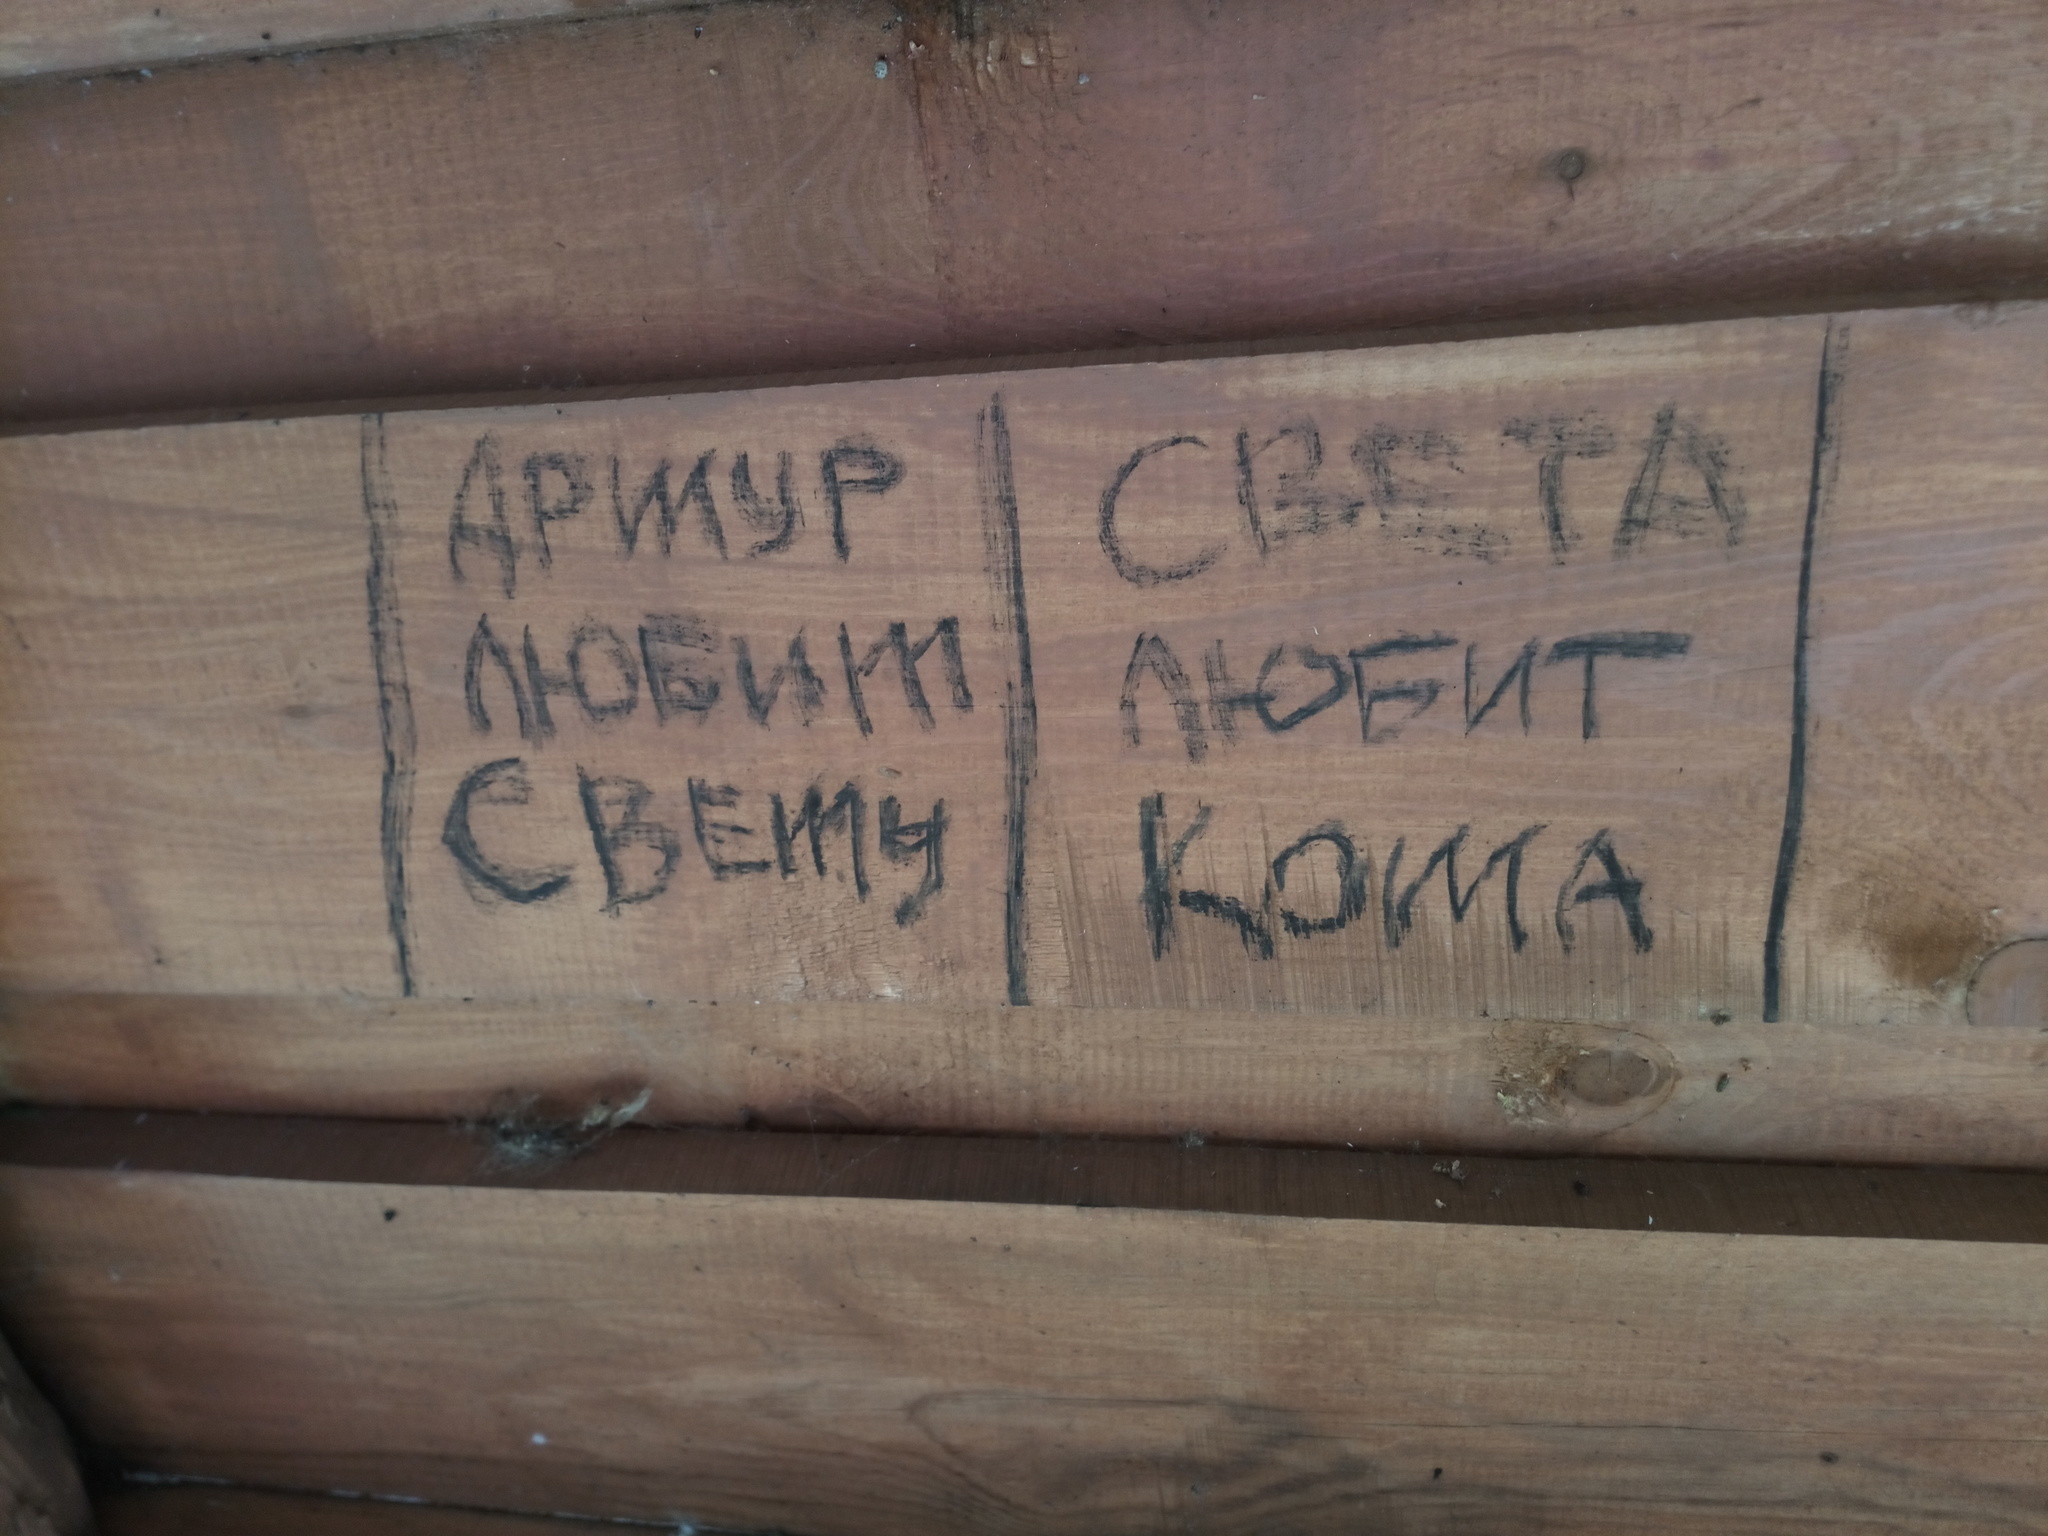 АРТУР
ЛЮБИТ
СВЕТУ
СВЕТА
ЛЮБИТ
КОТА